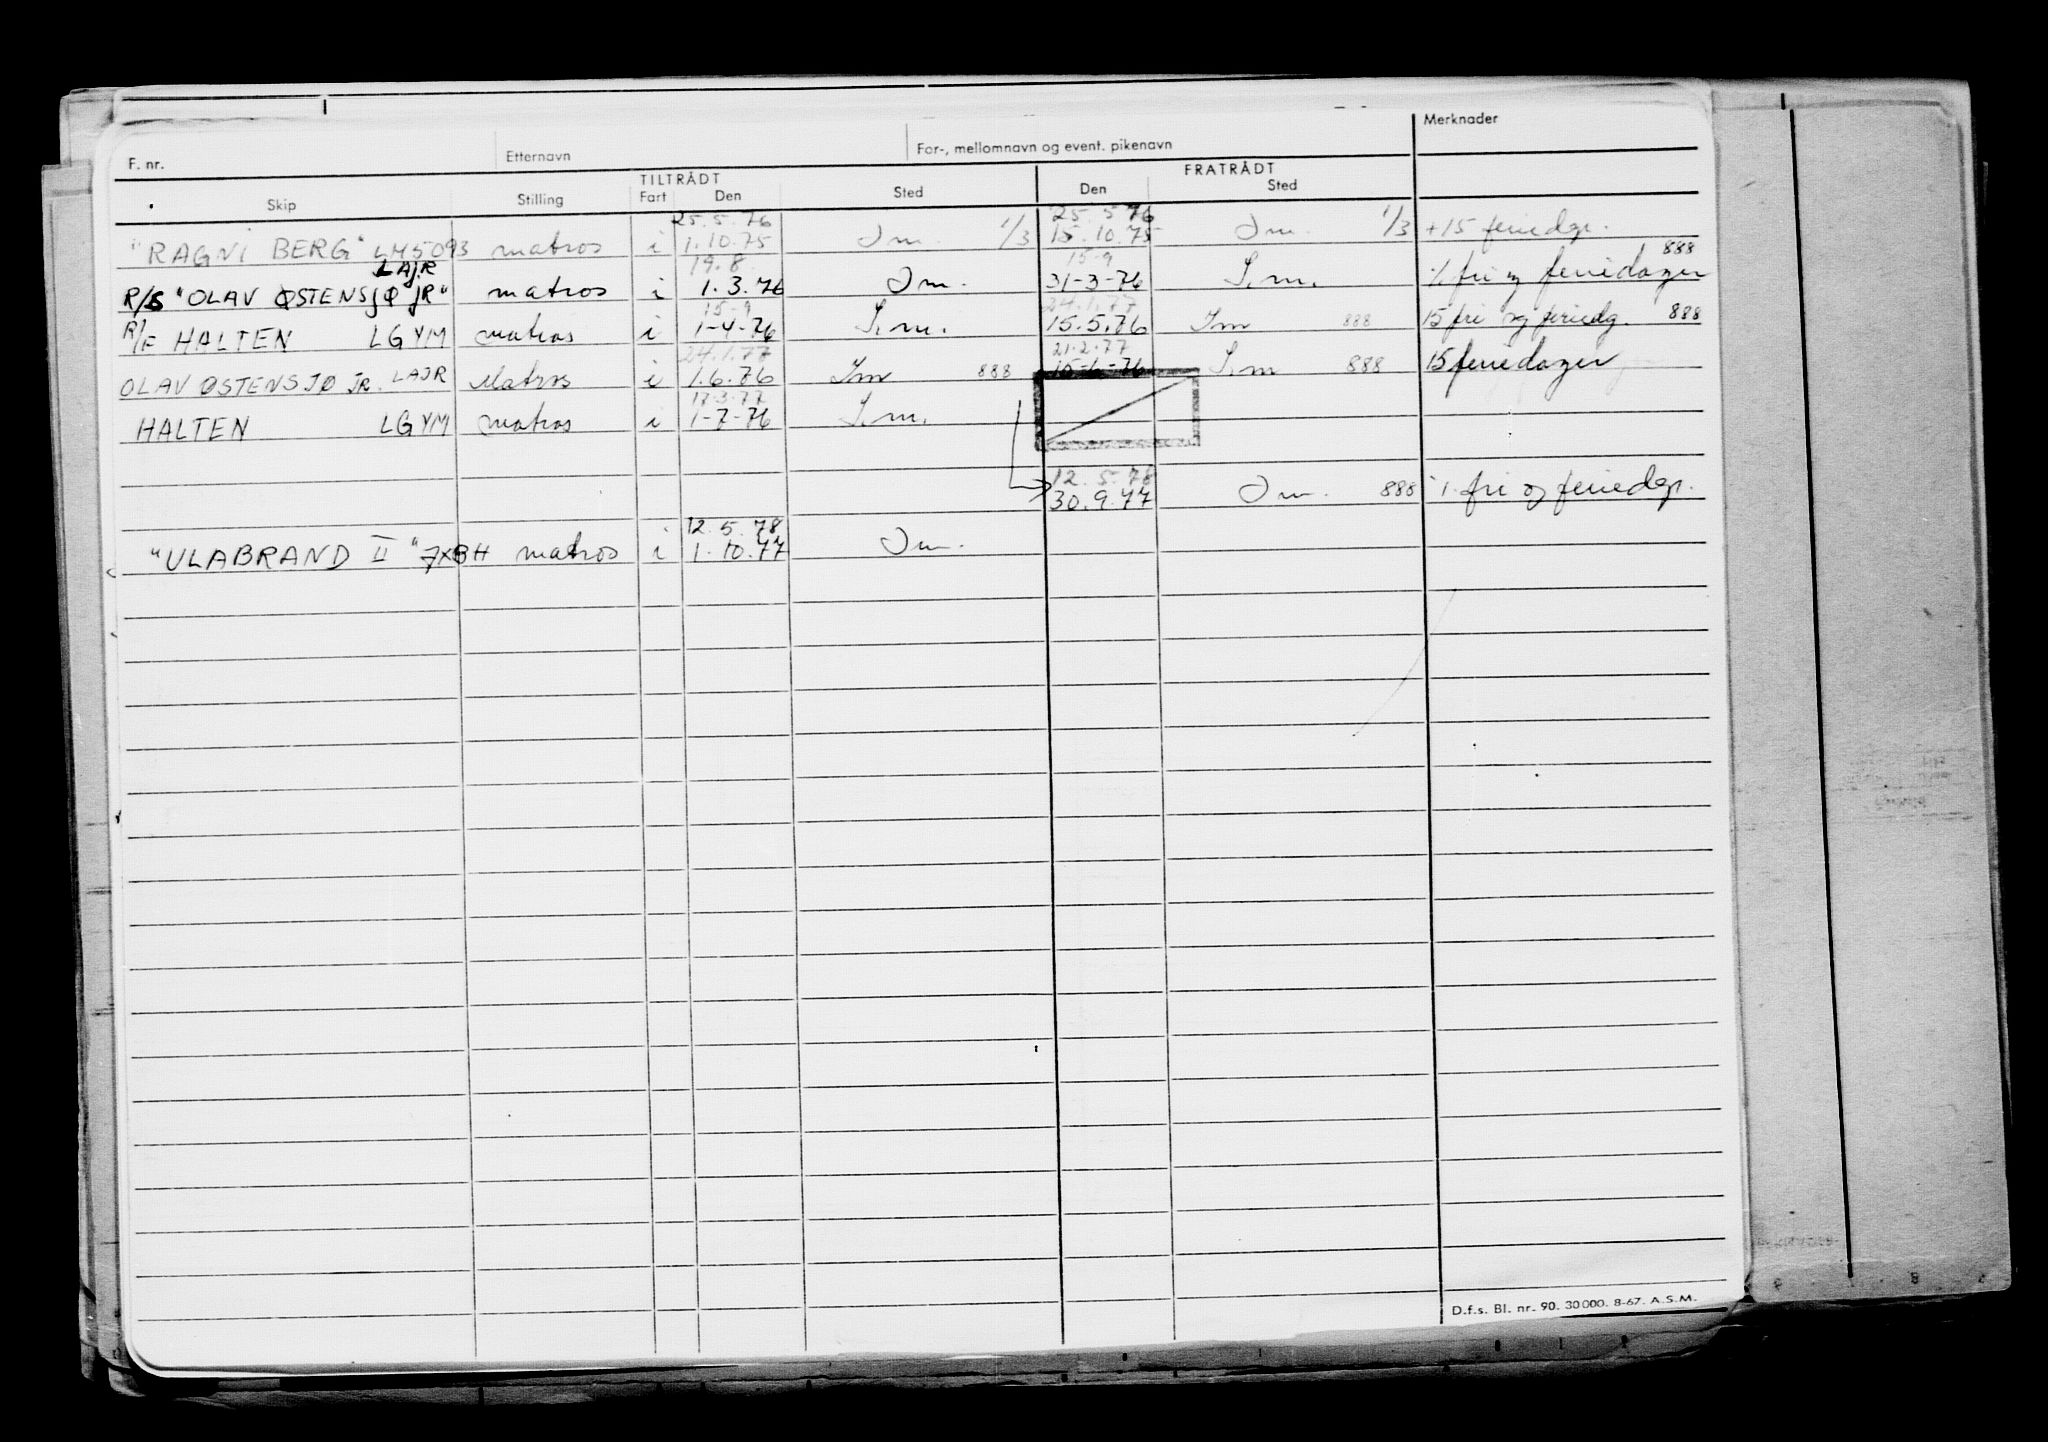 Merknader
F. nr. Etternavn For-, mellomnavn og event. pikenavn
TILTRÅDT FRATRÅDT
Skip Stilling Fart Den Sted Den Sted
25.5.76 25.5.76
"RAGNI BERG" LM5093 matros i 1.10.75 Im. 1/3 15.10.75 Im. 1/3 +15 feriedgr.
LAJR 19.8 15-9 888
R/S "OLAV ØSTENSJØ JR" matros i 1.3.76 Im. 31-3-76 I.m. % fri og feriedager
15-9 24.1.77
R/F HALTEN LGYM matros i 1-4-76 I.m. 15.5.76 Im 888 15 fri og feriedg. 888
24.1.77 21.2.77
OLAV ØSTENSJØ JR. LAJR Matros i 1.6.76 Im 888 15-6-76 I.m 888 15 feriedager
17.3.77
HALTEN LGYM matros i 1-7-76 I.m.
12.5.78
30.9.77 Im. 888 % fri og feriedgr.
12.5.78
"ULABRAND II" JXBH matros i 1.10.77 Im.
D.f.s. Bl. nr. 90. 30000. 8-67. A.S.M.